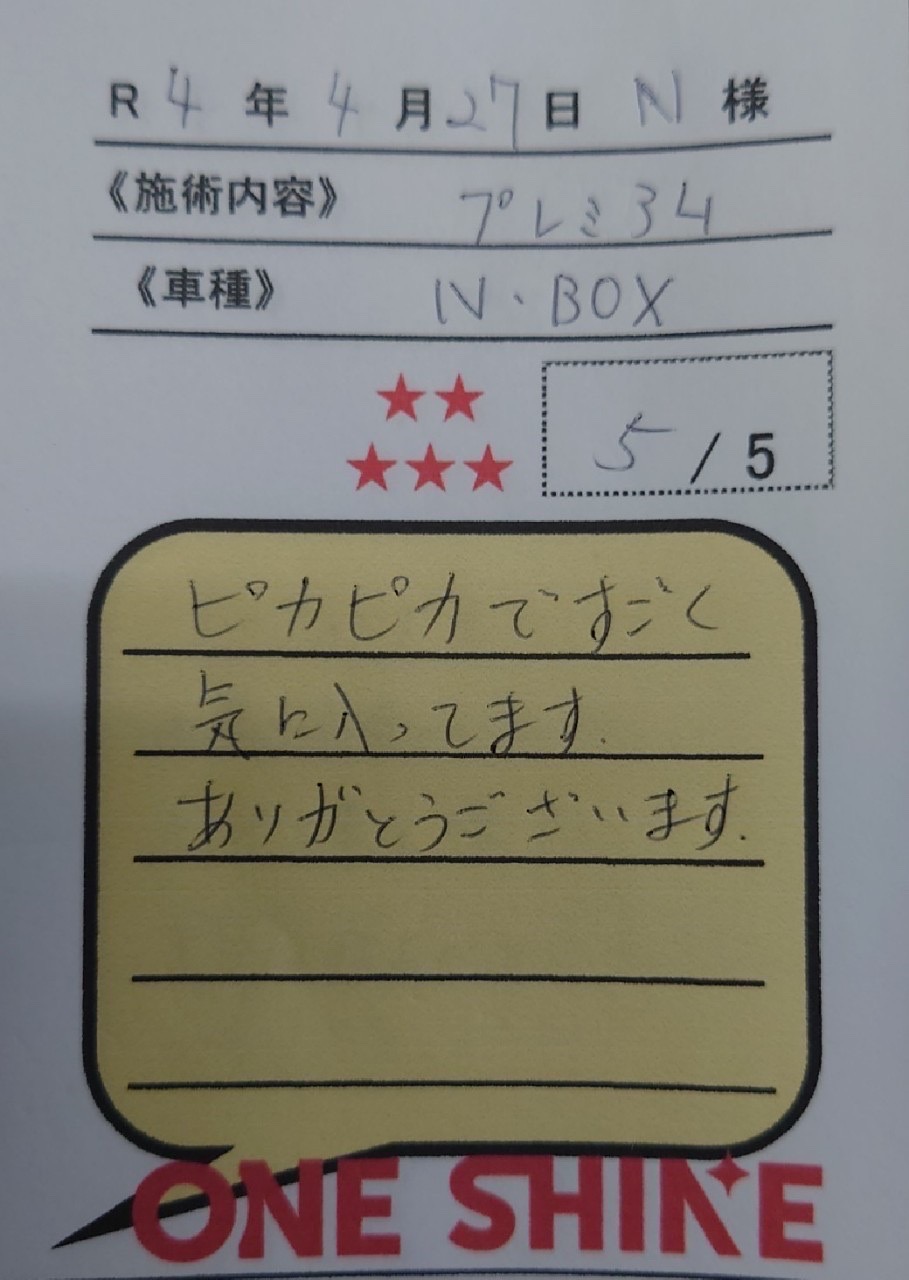 R4年4月27日 N様
《施術内容》 プレミ34
《車種》 N・BOX
★★
★★★ 5/5
ピカピカですごく
気に入ってます.
ありがとうございます.
ONE SHINE